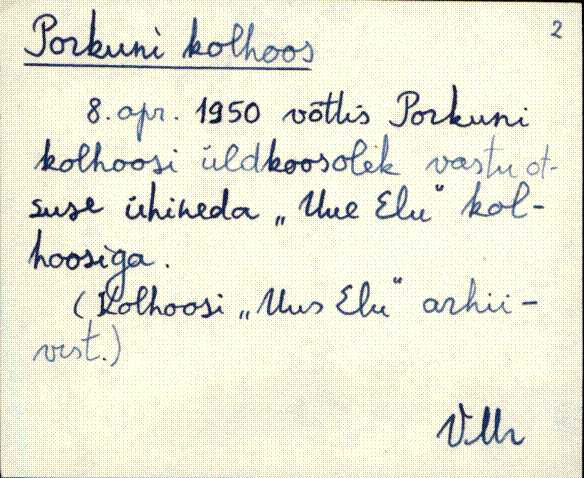 2
Porkuni kolhoos
8. apr. 1950 võttis Porkuni
kolhoosi üldkoosolek vastu ot-
suse ühineda „Uue Elu" kol-
hoosiga.
(Kolhoosi „Uus Elu" arhii-
vist.)